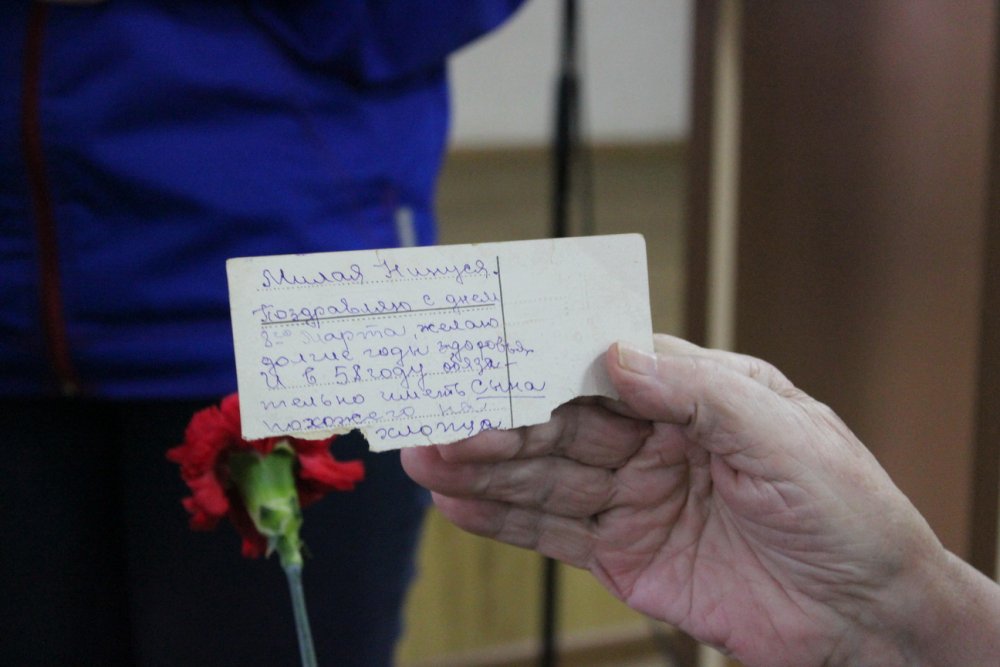 Милая Нинуся.
Поздравляю с днем
8го Марта, желаю
долгие годы здоровья,
И в 58 году обяза-
тельно иметь Сына
похожего на
хлопца